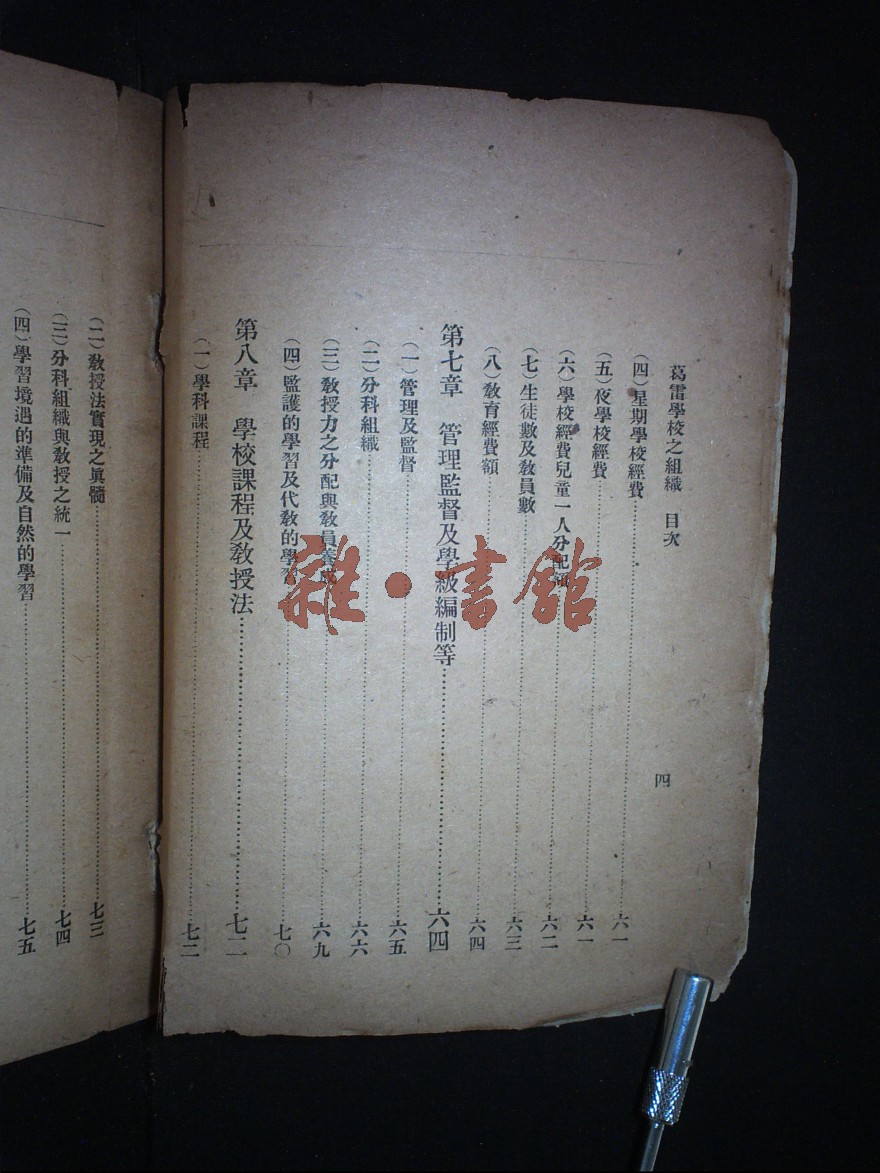 葛雷學校之組織 目次
四
(四)星期學校經費 六一
(五)夜學校經費 六一
(六)學校經費兒童一人分配額 六二
(七)生徒數及教員數 六三
(八)教育經費額 六四
第七章 管理監督及學級編制等 六四
(一)管理及監督 六五
(二)分科組織 六六
(三)教授力之分配與教員養成 六九
(四)監護的學習及代教的學習 七〇
第八章 學校課程及教授法 七二
(一)學科課程 七二
(二)教授法實現之眞髓 七三
(三)分科組織與教授之統一 七四
(四)學習境遇的準備及自然的學習 七五
雜·書館